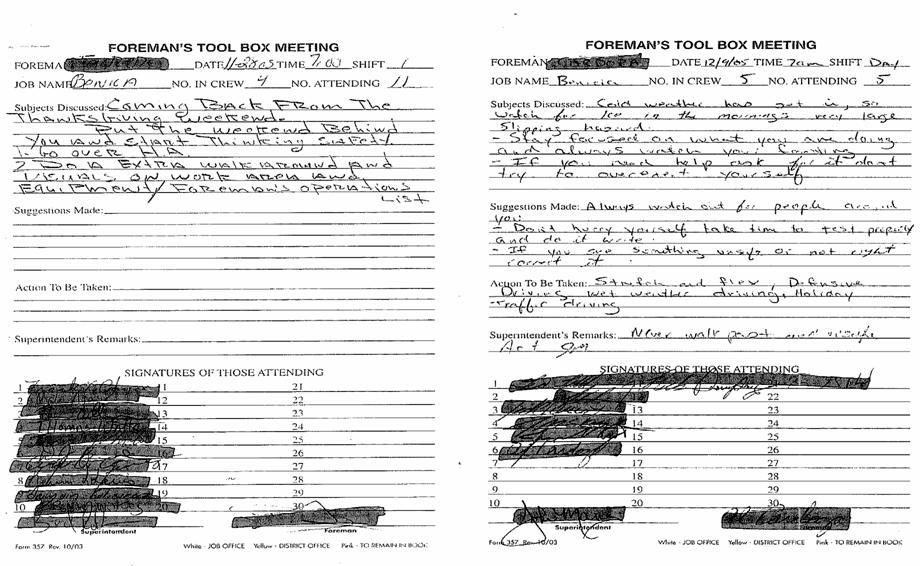 FOREMAN'S TOOL BOX MEETING
FOREMAN DATE TIME 7:00 SHIFT 1
JOB NAME BENICIA NO. IN CREW 4 NO. ATTENDING 11
Subjects Discussed: COMING BACK FROM THE
THANKSGIVING WEEKEND.
PUT THE WEEKEND BEHIND
YOU AND START THINKING SAFETY.
1. GO OVER
2 DO A EXTRA WALK AROUND AND
VISUALS ON WORK AREA AND
EQUIPMENT/ FOREMAN'S OPERATIONS
LIST
Suggestions Made:
Action To Be Taken:
Superintendent's Remarks:
SIGNATURES OF THOSE ATTENDING
1 11 21
2 12 22
3 13 23
4 14 24
5 15 25
6 16 26
7 17 27
8 18 28
9 19 29
10 20 30
Superintendent Foreman
Form 357 Rev. 10/03 White - JOB OFFICE Yellow - DISTRICT OFFICE Pink - TO REMAIN IN BOOK
FOREMAN'S TOOL BOX MEETING
FOREMAN DATE 12/9/05 TIME 7am SHIFT Day
JOB NAME Benicia NO. IN CREW 5 NO. ATTENDING 5
Subjects Discussed: Cold weather has set in, so
watch for Ice in the mornings very large
Slipping hazard.
- Stay focused on what you are doing
and always watch your
- If you need help ask for it dont
try to overexert yourself
Suggestions Made: Always watch out for people around
you.
- Don't hurry yourself take time to test properly
and do it write.
- If you see something unsafe or not right
correct it.
Action To Be Taken: Stretch and flex, Defensive
Driving, wet weather driving, Holiday
Traffic driving
Superintendent's Remarks: Never walk past
Act
SIGNATURES OF THOSE ATTENDING
1
2 12 22
3 13 23
4 14 24
5 15 25
6 16 26
7 17 27
8 18 28
9 19 29
10 20 30
Superintendent Foreman
Form 357 Rev. 10/03 White - JOB OFFICE Yellow - DISTRICT OFFICE Pink - TO REMAIN IN BOOK